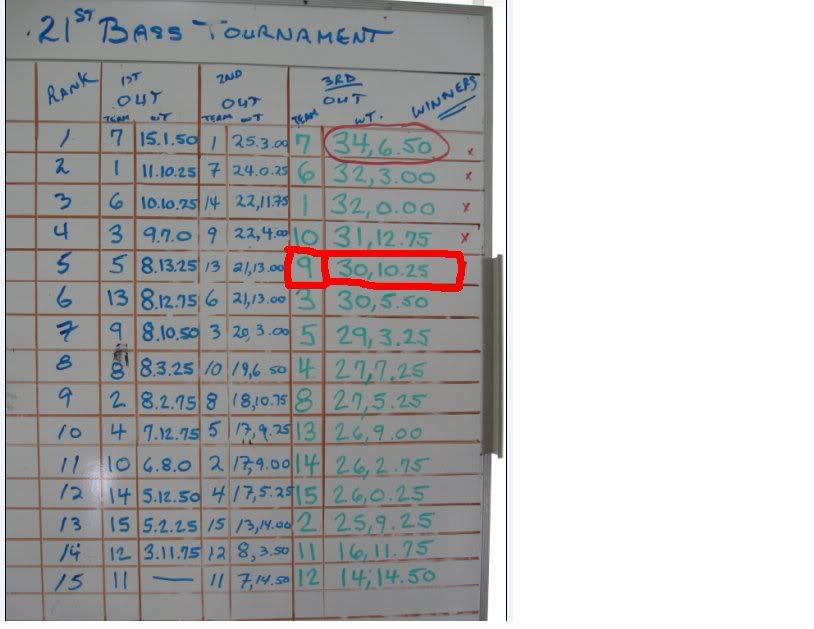 21ST BASS TOURNAMENT
RANK 1ST OUT 2ND OUT 3RD OUT WINNERS
TEAM WT TEAM WT TEAM WT.
1 7 15.1.50 1 25.3.00 7 34,6.50 x
2 1 11.10.25 7 24.0.25 6 32,3.00 x
3 6 10.10.25 14 22,11.75 1 32,0.00 x
4 3 9.7.0 9 22,4.00 10 31,12.75 x
5 5 8.13.25 13 21,13.00 9 30,10.25
6 13 8.12.75 6 21,13.00 3 30,5.50
7 9 8.10.50 3 20,3.00 5 29,3.25
8 8 8.3.25 10 19,6 50 4 27,7.25
9 2 8.2.75 8 18,10.75 8 27,5.25
10 4 7.12.75 5 17,9.25 13 26,9.00
11 10 6.8.0 2 17,9.00 14 26,2.75
12 14 5.12.50 4 17,5.25 15 26,0.25
13 15 5.2.25 15 13,14.00 2 25,9.25
14 12 3.11.75 12 8,3.50 11 16,11.75
15 11 — 11 7,14.50 12 14,14.50